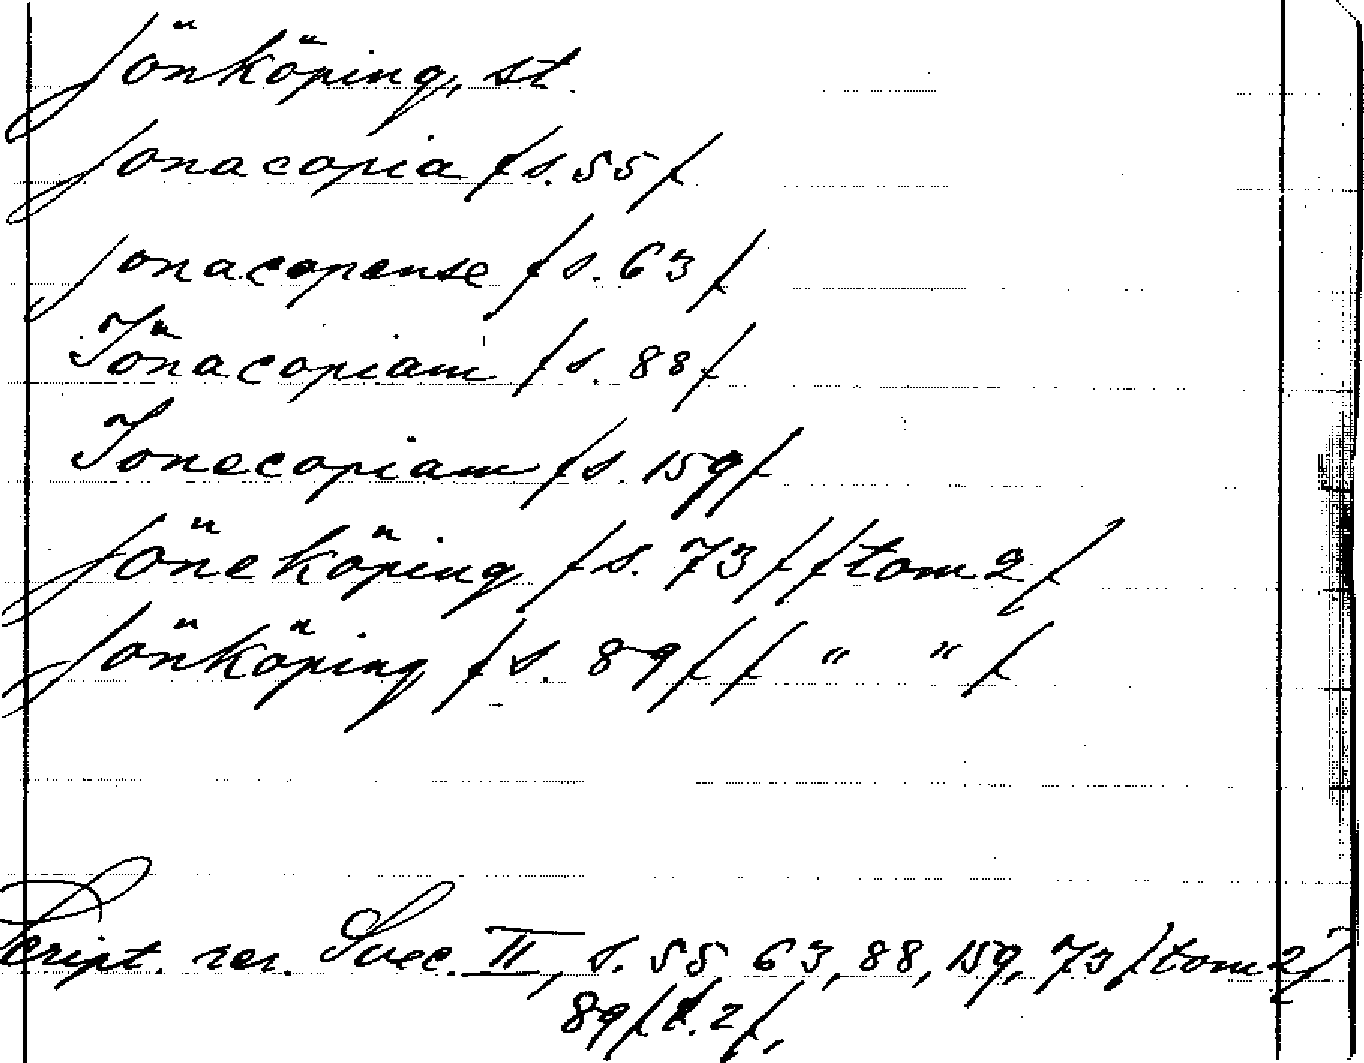 Jönköping, st.
Jonacopia /s. 55/
Jonacopense /s. 63/
Jönacopiam /s. 88/
Jonecopiam /s. 159/
Jöneköping /s. 73/ /tom 2/
Jönköping /s. 89/ / " " /
Script. rer. Svec. II, s. 55, 63, 88, 159, 73 /tom 2/
89 /t. 2/,